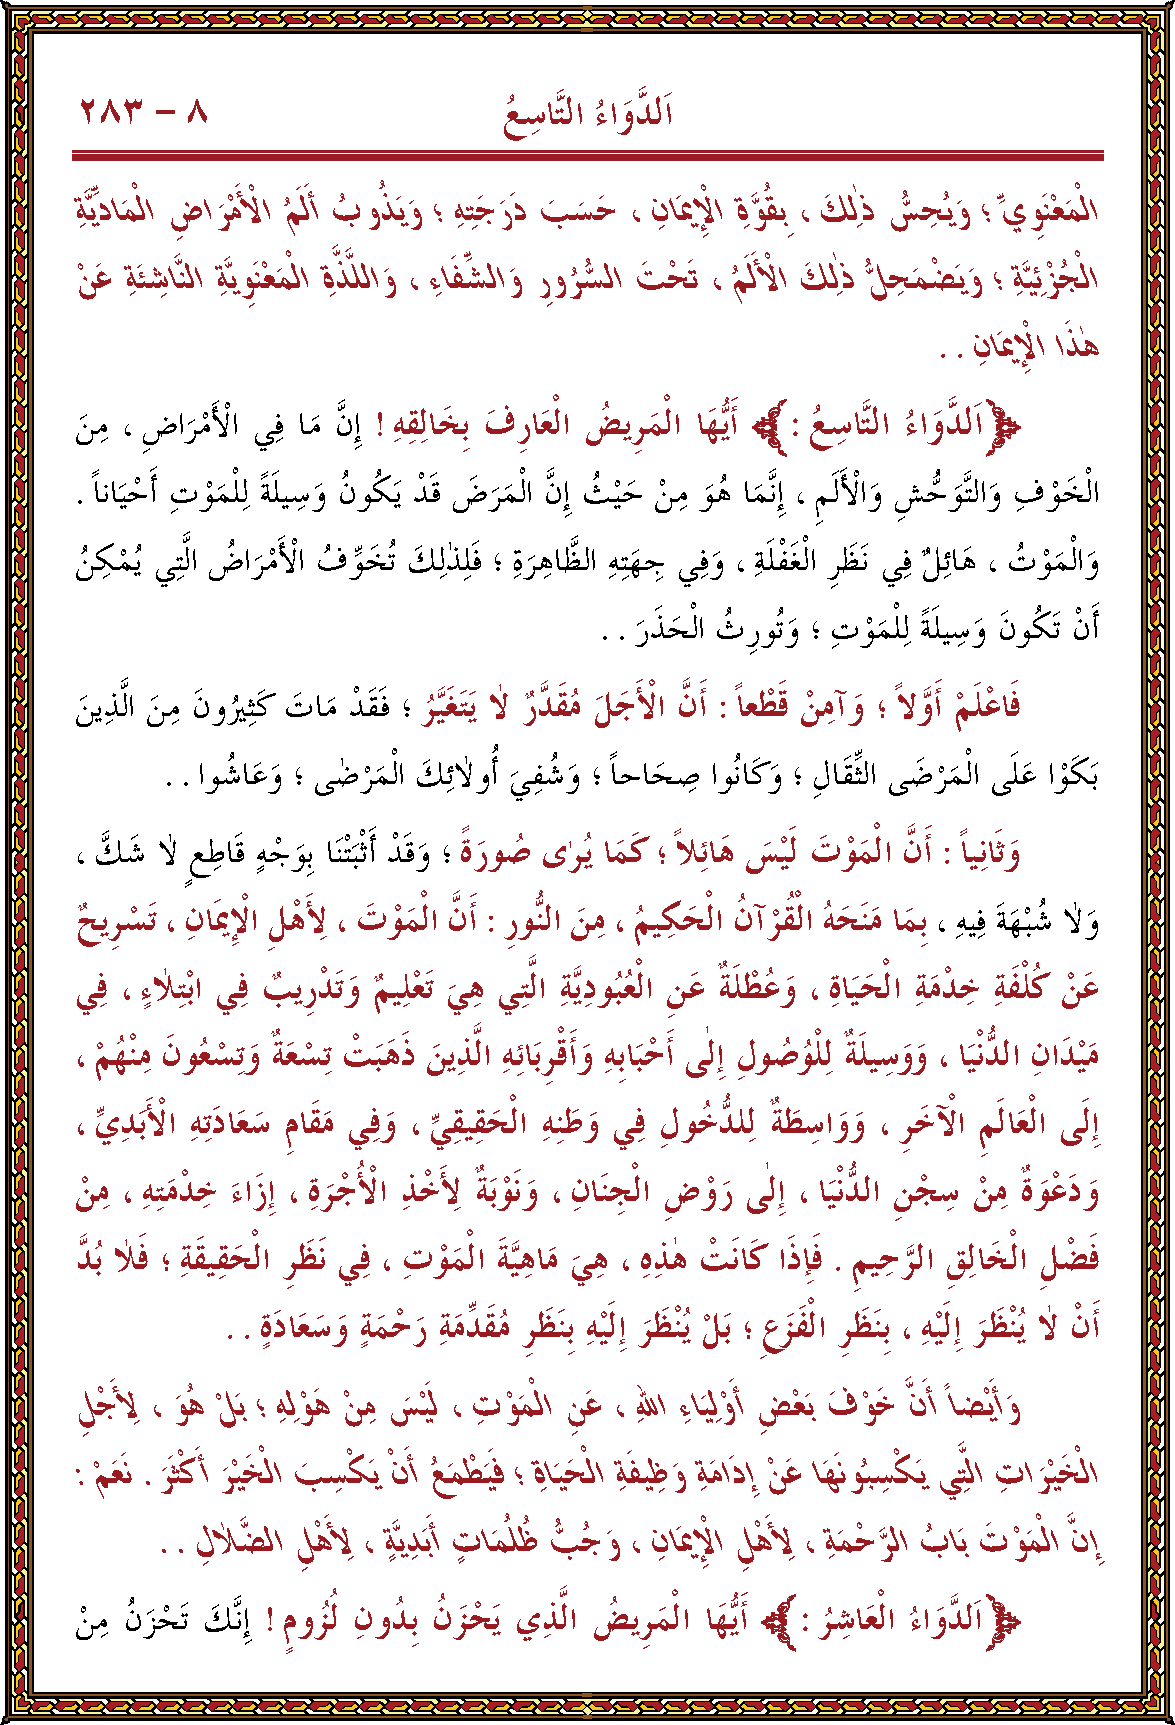 اَلدَّوَاءُ التَّاسِعُ ٨ – ٢٨٣
الْمَعْنَوِيِّ ؛ وَيُحِسُّ ذٰلِكَ ، بِقُوَّةِ الْإِيمَانِ ، حَسَبَ دَرَجَتِهِ ؛ وَيَذُوبُ أَلَمُ الْأَمْرَاضِ الْمَادِّيَّةِ
الْجُزْئِيَّةِ ؛ وَيَضْمَحِلُّ ذٰلِكَ الْأَلَمُ ، تَحْتَ السُّرُورِ وَالشِّفَاءِ ، وَاللَّذَّةِ الْمَعْنَوِيَّةِ النَّاشِئَةِ عَنْ
هٰذَا الْإِيمَانِ . .
﴿اَلدَّوَاءُ التَّاسِعُ :﴾ أَيُّهَا الْمَرِيضُ الْعَارِفَ بِخَالِقِهِ ! إِنَّ مَا فِي الْأَمْرَاضِ ، مِنَ
الْخَوْفِ وَالتَّوَحُّشِ وَالْأَلَمِ ، إِنَّمَا هُوَ مِنْ حَيْثُ إِنَّ الْمَرَضَ قَدْ يَكُونُ وَسِيلَةً لِلْمَوْتِ أَحْيَاناً .
وَالْمَوْتُ ، هَائِلٌ فِي نَظَرِ الْغَفْلَةِ ، وَفِي جِهَتِهِ الظَّاهِرَةِ ؛ فَلِذٰلِكَ تُخَوِّفُ الْأَمْرَاضُ الَّتِي يُمْكِنُ
أَنْ تَكُونَ وَسِيلَةً لِلْمَوْتِ ؛ وَتُورِثُ الْحَذَرَ . .
فَاعْلَمْ أَوَّلاً ؛ وَآمِنْ قَطْعاً : أَنَّ الْأَجَلَ مُقَدَّرٌ لَا يَتَغَيَّرُ ؛ فَقَدْ مَاتَ كَثِيرُونَ مِنَ الَّذِينَ
بَكَوْا عَلَى الْمَرْضَى الثِّقَالِ ؛ وَكَانُوا صِحَاحاً ؛ وَشُفِيَ أُولٰئِكَ الْمَرْضٰى ؛ وَعَاشُوا . .
وَثَانِياً : أَنَّ الْمَوْتَ لَيْسَ هَائِلاً ؛ كَمَا يُرٰى صُورَةً ؛ وَقَدْ أَثْبَتْنَا بِوَجْهٍ قَاطِعٍ لَا شَكَّ ،
وَلَا شُبْهَةَ فِيهِ ، بِمَا مَنَحَهُ الْقُرْآنُ الْحَكِيمُ ، مِنَ النُّورِ : أَنَّ الْمَوْتَ ، لِأَهْلِ الْإِيمَانِ ، تَسْرِيحٌ
عَنْ كُلْفَةِ خِدْمَةِ الْحَيَاةِ ، وَعُطْلَةٌ عَنِ الْعُبُودِيَّةِ الَّتِي هِيَ تَعْلِيمٌ وَتَدْرِيبٌ فِي ابْتِلَاءٍ ، فِي
مَيْدَانِ الدُّنْيَا ، وَوَسِيلَةٌ لِلْوُصُولِ إِلٰى أَحْبَابِهِ وَأَقْرِبَائِهِ الَّذِينَ ذَهَبَتْ تِسْعَةٌ وَتِسْعُونَ مِنْهُمْ ،
إِلَى الْعَالَمِ الْآخَرِ ، وَوَاسِطَةٌ لِلدُّخُولِ فِي وَطَنِهِ الْحَقِيقِيِّ ، وَفِي مَقَامِ سَعَادَتِهِ الْأَبَدِيِّ ،
وَدَعْوَةٌ مِنْ سِجْنِ الدُّنْيَا ، إِلٰى رَوْضِ الْجِنَانِ ، وَنَوْبَةٌ لِأَخْذِ الْأُجْرَةِ ، إِزَاءَ خِدْمَتِهِ ، مِنْ
فَضْلِ الْخَالِقِ الرَّحِيمِ . فَإِذَا كَانَتْ هٰذِهِ ، هِيَ مَاهِيَّةَ الْمَوْتِ ، فِي نَظَرِ الْحَقِيقَةِ ؛ فَلَا بُدَّ
أَنْ لَا يُنْظَرَ إِلَيْهِ ، بِنَظَرِ الْفَزَعِ ؛ بَلْ يُنْظَرَ إِلَيْهِ بِنَظَرِ مُقَدِّمَةِ رَحْمَةٍ وَسَعَادَةٍ . .
وَأَيْضاً أَنَّ خَوْفَ بَعْضِ أَوْلِيَاءِ اللهِ ، عَنِ الْمَوْتِ ، لَيْسَ مِنْ هَوْلِهِ ؛ بَلْ هُوَ ، لِأَجْلِ
الْخَيْرَاتِ الَّتِي يَكْسِبُونَهَا عَنْ إِدَامَةِ وَظِيفَةِ الْحَيَاةِ ؛ فَيَطْمَعُ أَنْ يَكْسِبَ الْخَيْرَ أَكْثَرَ . نَعَمْ :
إِنَّ الْمَوْتَ بَابُ الرَّحْمَةِ ، لِأَهْلِ الْإِيمَانِ ، وَجُبُّ ظُلُمَاتٍ أَبَدِيَّةٍ ، لِأَهْلِ الضَّلَالِ . .
﴿اَلدَّوَاءُ الْعَاشِرُ :﴾ أَيُّهَا الْمَرِيضُ الَّذِي يَحْزَنُ بِدُونِ لُزُومٍ ! إِنَّكَ تَحْزَنُ مِنْ